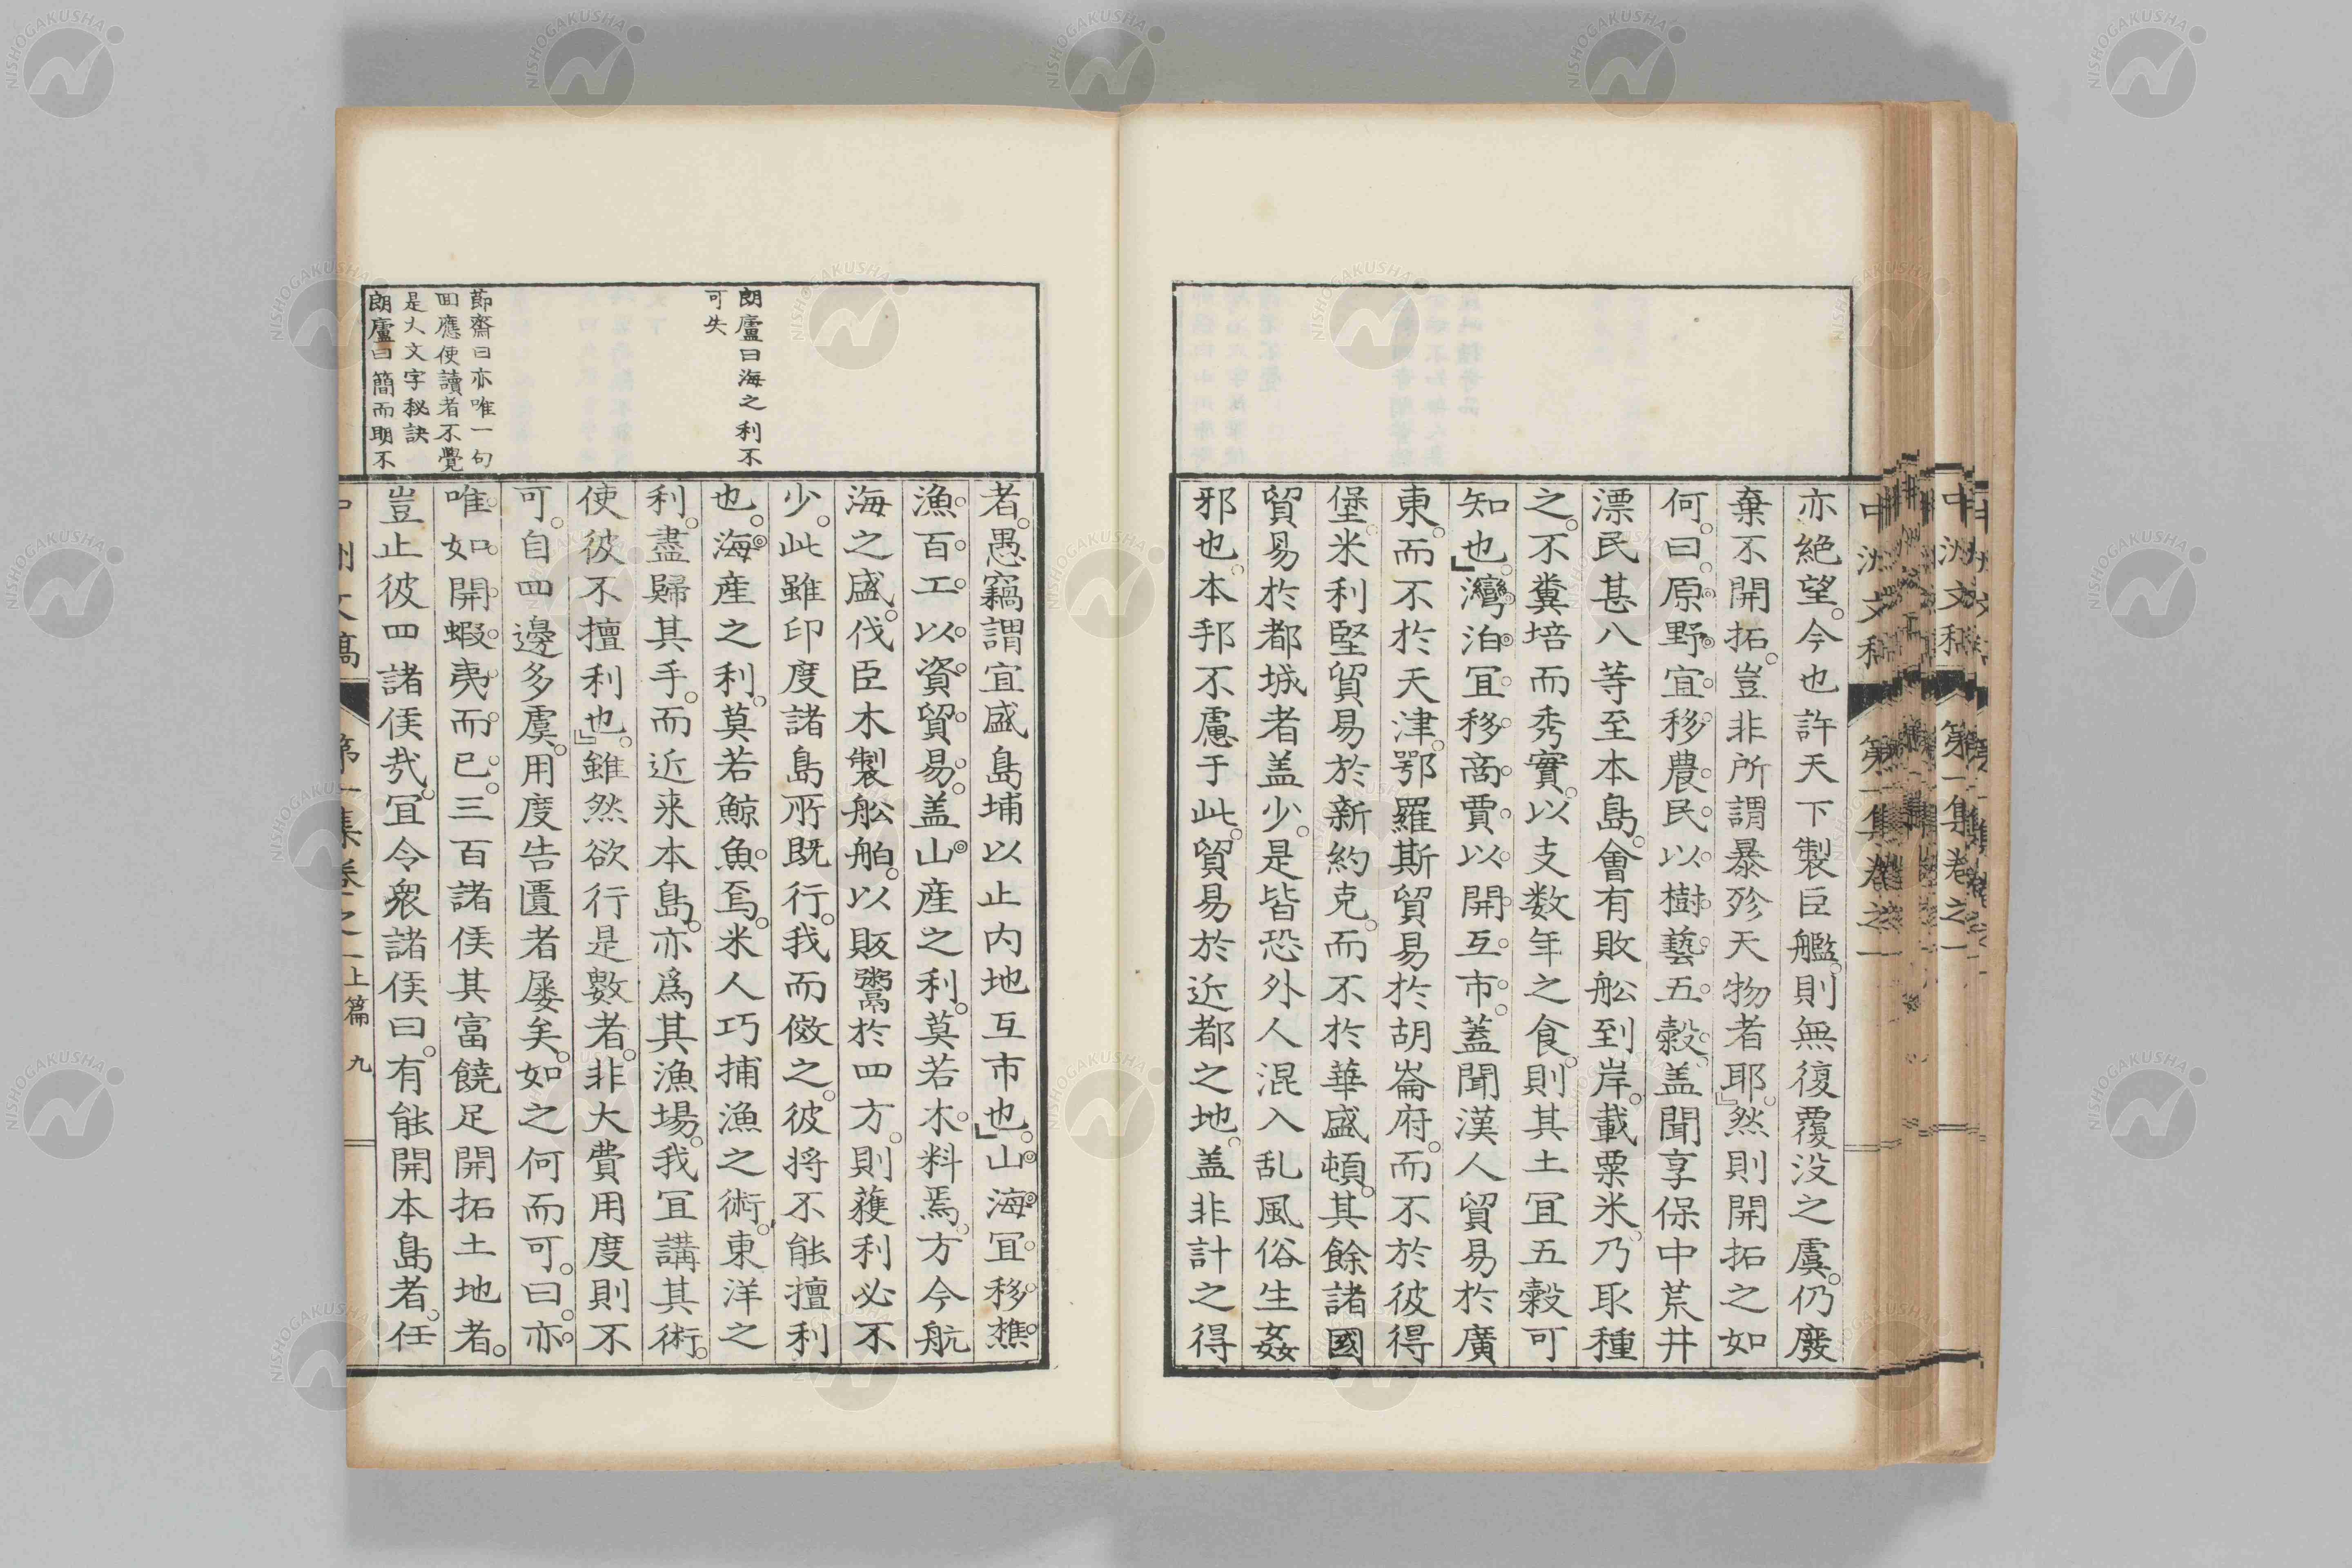 亦絶望。今也許天下製巨艦。則無復覆没之虞。仍廢
棄不開拓。豈非所謂暴殄天物者耶。』然則開拓之如
何。曰。原野宜移農民。以樹藝五穀。盖聞享保中荒井
漂民甚八等至本島。會有敗舩到岸。載粟米。乃取種
之。不糞培而秀實。以支数年之食。則其土冝五穀可
知也。』灣泊冝移商賈。以開互市。蓋聞漢人貿易於廣
東。而不於天津。鄂羅斯貿易於胡崙府。而不於彼得
堡。米利堅貿易於新約克。而不於華盛頓。其餘諸國
貿易於都城者盖少。是皆恐外人混入乱風俗生姦
邪也。本邦不慮于此。貿易於近都之地。盖非計之得
者。愚竊謂宜盛島埔以止内地互市也。』山海冝移樵
漁百工。以資貿易。盖山産之利。莫若木料焉。方今航
海之盛。伐臣木製舩舶。以販鬻於四方。則薙利必不
少。此雖印度諸島所既行。我而倣之。彼将不能擅利
也。海産之利。莫若鯨魚焉。米人巧捕漁之術。東洋之
利。盡歸其手。而近来本島。亦爲其漁場。我冝講其術。
使彼不擅利也。』雖然欲行是數者。非大費用度則不
可。自四邊多虞。用度告匱者屡矣。如之何而可。曰。亦
唯如開蝦夷而已。三百諸侯其富饒足開拓土地者。
豈止彼四諸侯哉。冝令衆諸侯曰。有能開本島者。任
朗廬曰海之利不
可失
節齋曰亦唯一句
回應使讀者不覺
是大文字秘訣
朗廬曰簡而明不
中洲文稿 第一集卷之一 上篇 九
中洲文稿 第一集卷之一